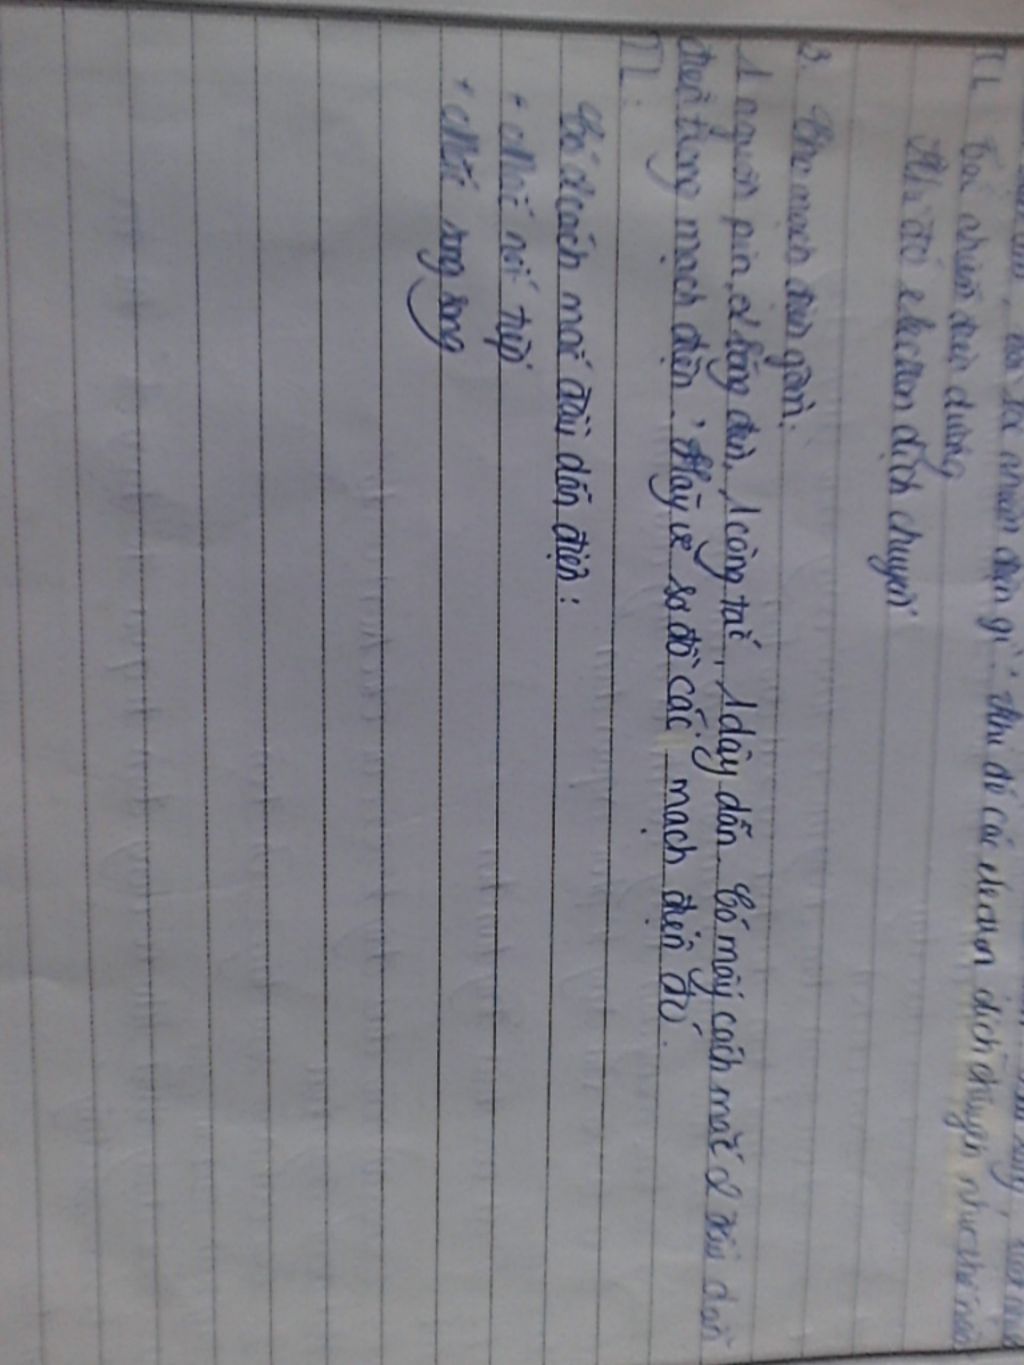 vải khi nhiễm điện gì? Khi đó các electron dịch chuyển như thế nào
TL Vải nhiễm điện dương
Khi đó electron dịch chuyển
3. Cho mạch điện gồm:
1 nguồn pin, 2 bóng đèn, 1 công tắc, 1 dây dẫn. Có mấy cách mắc 2 đầu dẫn
điện trong mạch điện. Hãy vẽ sơ đồ các mạch điện đó.
TL:
Có 2 cách mắc đầu dẫn điện:
+ Mắc nối tiếp
+ Mắc song song